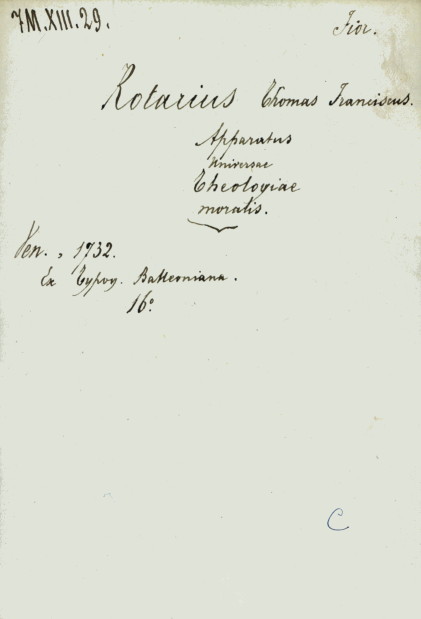 7M.XIII.29.
Fior.
Rotarius Thomas Franciscus.
Apparatus
Universae
Theologiae
moralis.
Ven., 1732.
Ex Typog. Balleoniana.
16°
C